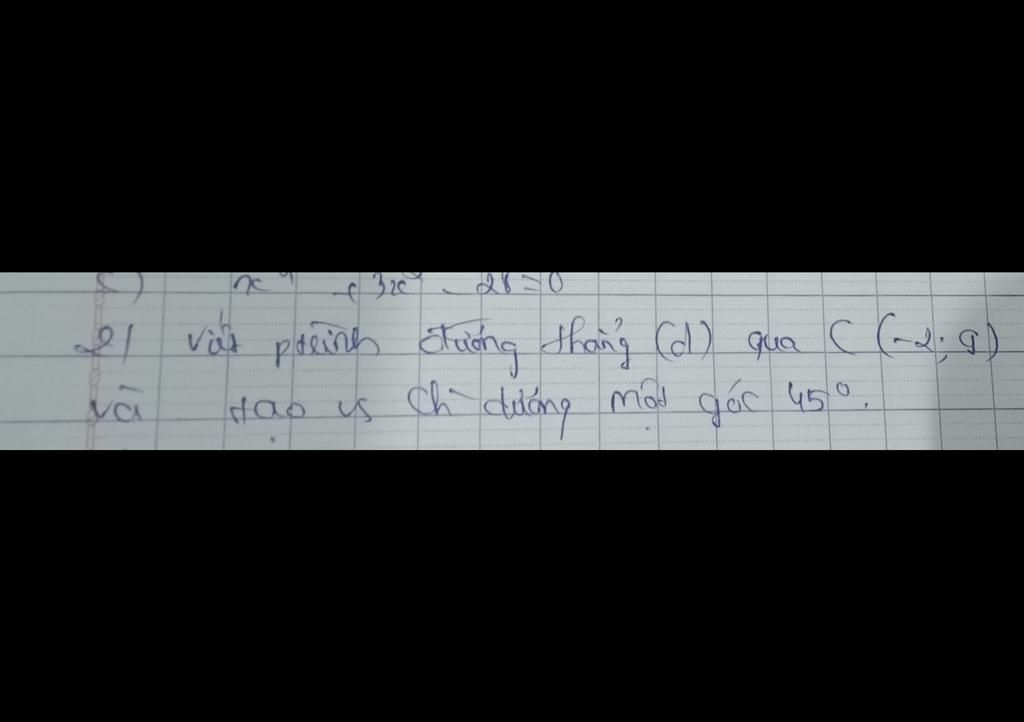 c) x⁴ + 3x² - 28 = 0
2/ Viết ptrình đường thẳng (d) qua C (-2; 9)
và tạo vs Ch dương một góc 45°.